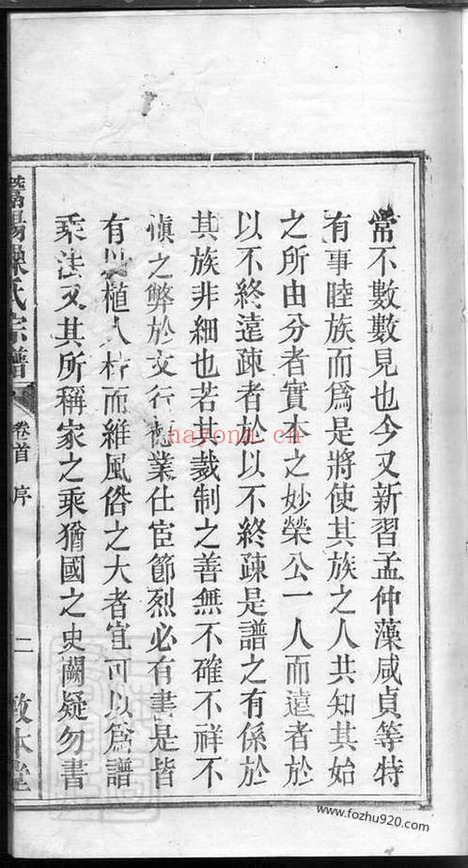 常不數數見也今又新習孟仲藻咸貞等特
有事睦族而爲是將使其族之人共知其始
之所由分者實本之妙榮公一人而遠者於
以不終遠疎者於以不終疎是譜之有係於
其族非細也若其裁制之善無不確不祥不
慎之弊於文行視業仕宦節烈必有書是皆
有以植人材而維風俗之大者宜可以爲譜
乘法又其所稱家之乘猶國之史闕疑勿書
陽操氏宗譜
卷首 序
二
敦本堂
nayona.cn
www.fozhu920.com